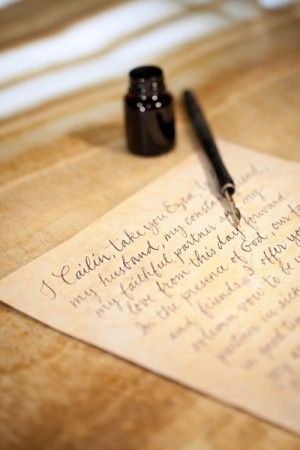 I Cailin, take you Ezra, to be
my husband, my constant friend,
my faithful partner and my
love from this day forward.
In the presence of God, our
and friends I offer you
solemn vow to be
partner in
in good